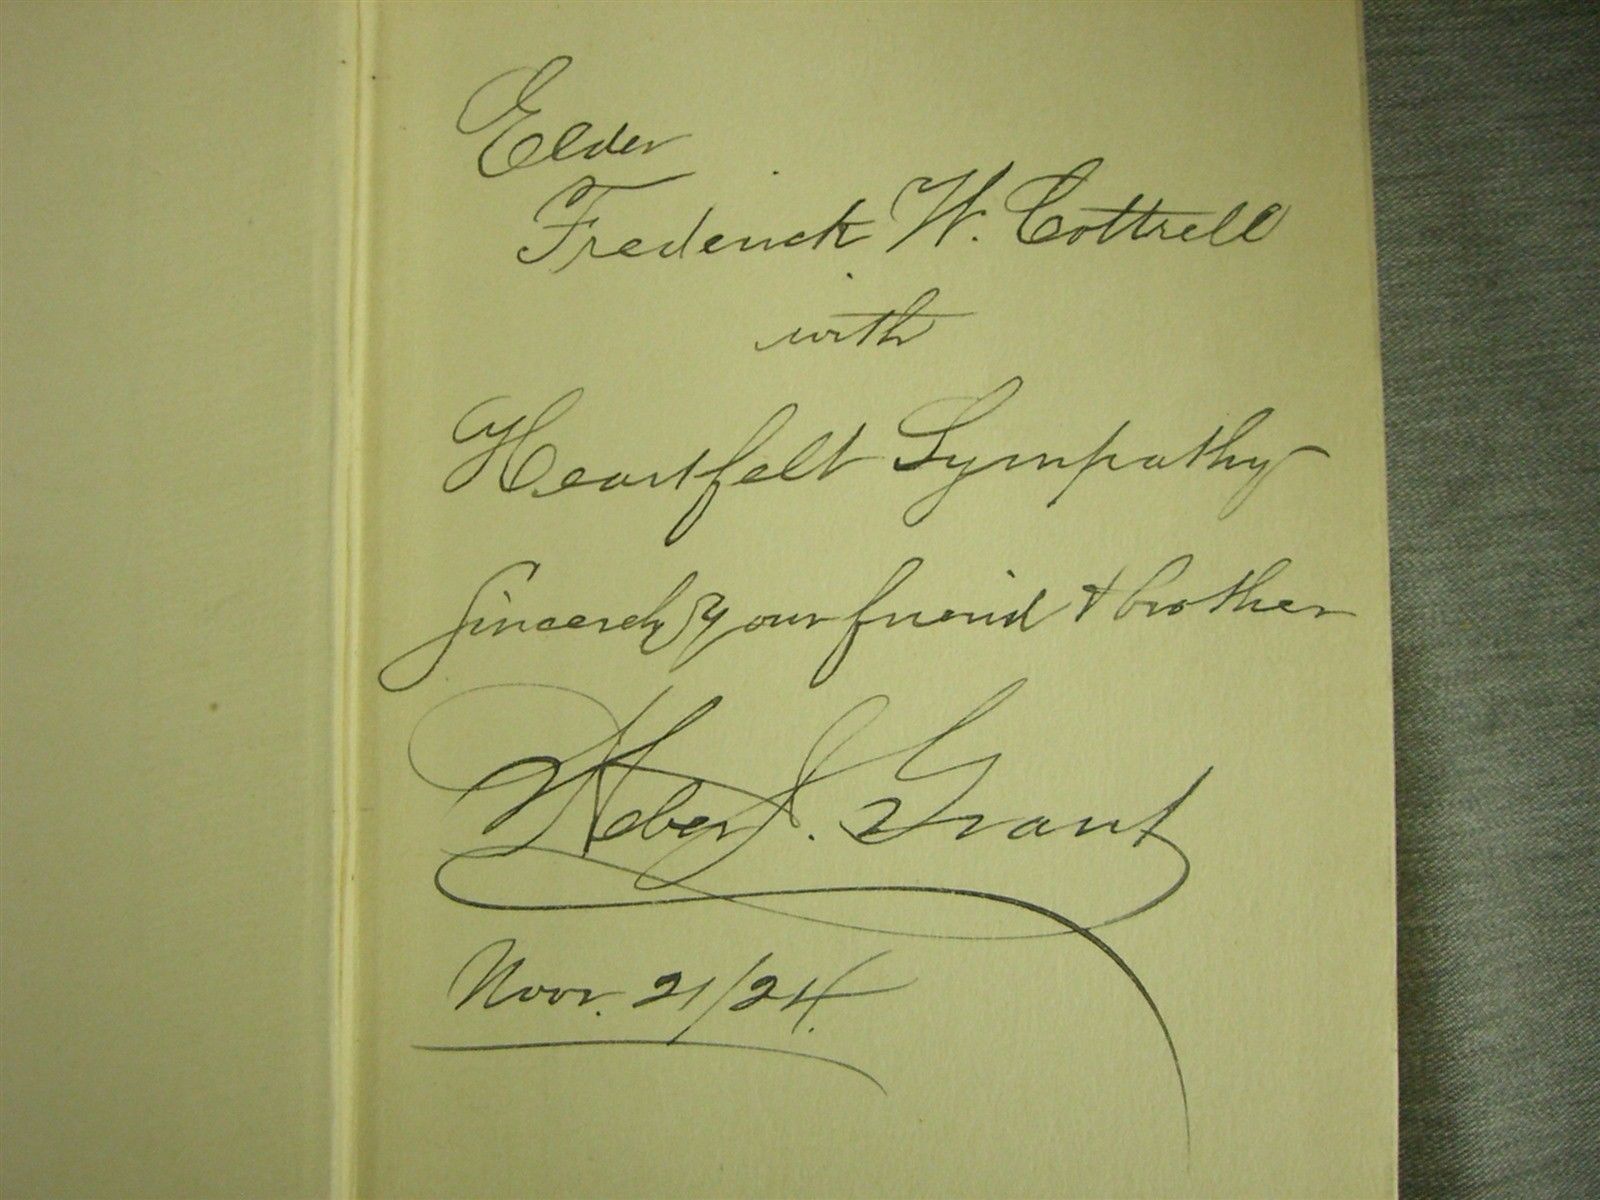 Elder
Frederick W. Cottrell
with
Heartfelt Sympathy
Sincerely your friend & brother
Heber J. Grant
Nov. 21/24.